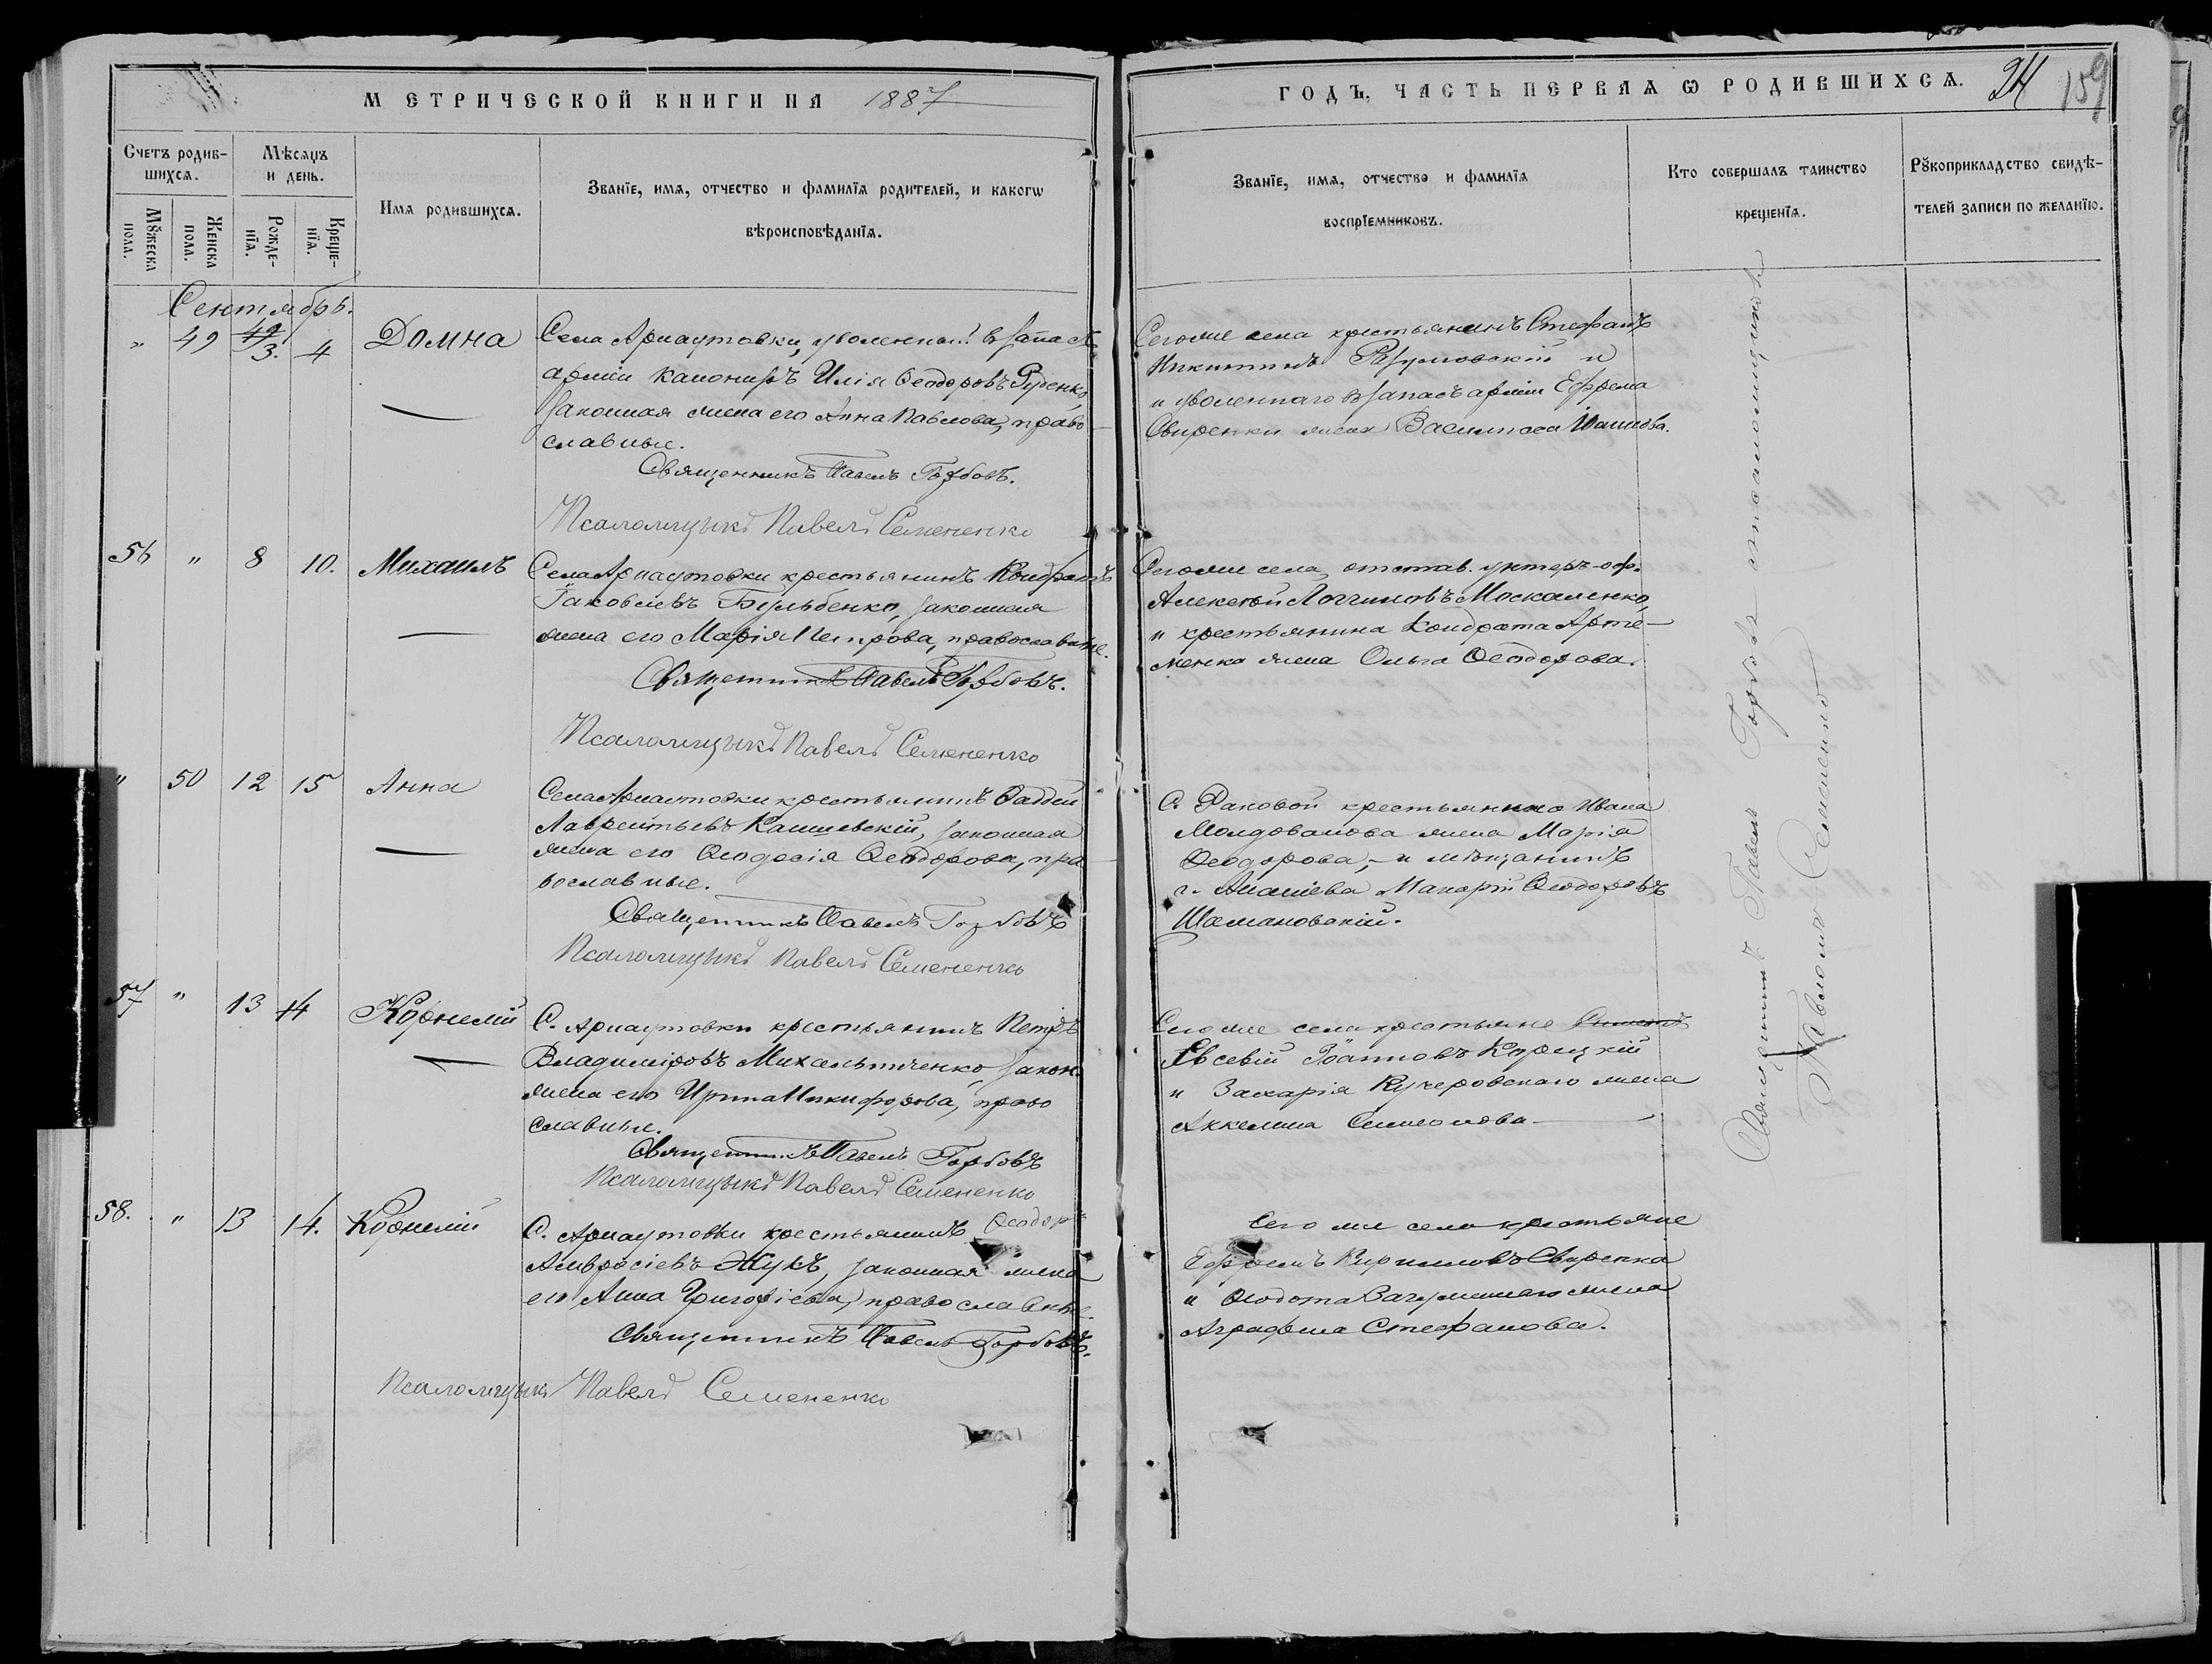 МЕТРИЧЕСКОЙ КНИГИ НА 1887
ГОДЪ, ЧАСТЬ ПЕРВАѦ Ѡ РОДИВШИХСѦ. 24 159
Счетъ родив-
шихсѧ.
Мѣсѧцъ
и день.
Мꙋжеска
пола.
Женска
пола.
Рожде-
нїѧ.
Креще-
нїѧ.
Имѧ родившихсѧ.
Званїе, имѧ, отчество и фамилїѧ родителей, и какогѡ
вѣроисповѣданїѧ.
Званїе, имѧ, отчество и фамилїѧ
воспрїемниковъ.
Кто совершалъ таинство
крещенїѧ.
Рꙋкоприкладство свидѣ-
телей записи по желанїю.
Сентябрь.
" 49 3. 4 Домна
Села Арнаутовки, уволенный в запасъ
арміи канониръ Илія Ѳеодоровъ Руденко,
законная жена его Анна Павлова, право
славные.
Священникъ Павелъ Горбовъ.
Псаломщикъ Павелъ Семененко
Сегоже села крестьянинъ Стефанъ
Никитинъ Разумовскій и
и уволеннаго в запасъ арміи Ефрема
Свиренки жена Василисса
56 " 8 10. Михаилъ
Села Арнаутовки крестьянинъ Кондратъ
Іаковлевъ Бульбенко, законная
жена его Марія Петрова, православные.
Священникъ Павелъ Горбовъ.
Псаломщикъ Павелъ Семененко
Сегоже села, отстав. унтеръ-оф.
Алексѣй Логгиновъ Москаленко,
и крестьянина Кондрата Арте-
менка жена Ольга Ѳеодорова.
" 50 12 15 Анна
Села Арнаутовки крестьянинъ Ѳаддей
Лаврентьевъ законная
жена его Ѳеодосія Ѳеодорова, пра
вославные.
Священникъ Павелъ Горбовъ
Псаломщикъ Павелъ Семененко
С. Раковой крестьянина Ивана
Молдованова жена Марія
Ѳеодорова, – и мѣщанинъ
г. Ананіева Макарій Ѳеодоровъ
Шамановскій.
57 " 13 14 Корнелій
С. Арнаутовки крестьянинъ Петръ
Владиміровъ Михальниченко, закон.
жена его Ирина Никифорова, право
славные.
Священникъ Павелъ Горбовъ
Псаломщикъ Павелъ Семененко
Сегоже села крестьяне
Евсевій Іоанновъ Корецкій
и Захарія Кучеровскаго жена
Аккелина Симеонова
58. " 13 14. Корнелій
С. Арнаутовки крестьянинъ Ѳеодоръ
Амвросіевъ Жукъ, законная жена
его Анна Григоріева, православные.
Священникъ Павелъ Горбовъ.
Псаломщикъ Павелъ Семененко
Сего же села крестьяне
Ефремъ Кирилловъ Свиренка
и Ѳеодота жена
Аграфена Стефанова.
Священникъ Павелъ Горбовъ съ псаломщикомъ
Павломъ Семененко